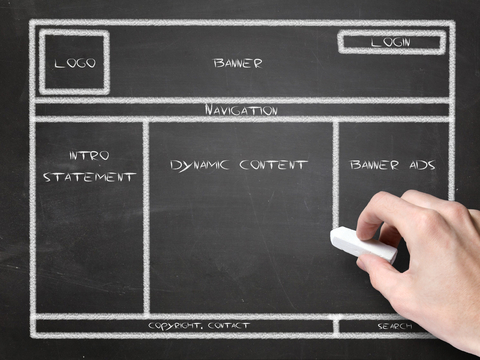 LOGIN
LOGO
BANNER
NAVIGATION
INTRO
STATEMENT
DYNAMIC CONTENT
BANNER ADS
COPYRIGHT, CONTACT
SEARCH